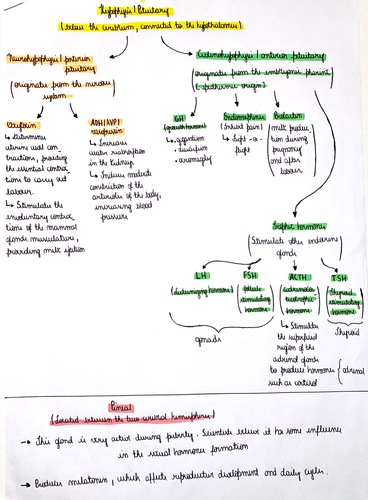 Hypophysis / Pituitary
(below the cerebrum, connected to the hypothalamus)
Neurohypophysis / posterior
pituitary
(originates from the nervous
system)
Oxytocin
↳ Determines
uterine wall con-
tractions, providing
the essential contrac
tions to carry out
labour.
↳ Stimulates the
involuntary contrac
tions of the mammal
glands musculature,
providing milk ejection
ADH/AVP/
vasopressin
↳ Increases
water reabsorption
in the kidneys.
↳ Induces moderate
constriction of the
arterioles of the body,
increasing blood
pressure
Adenohypophysis / anterior pituitary
(originates from the embryonic pharinx)
(epidermic origin)
GH
(growth hormone)
- gigantism
- dwarfism
- acromegaly
Endomorphins
(Inhibit pain)
↳ Fight-or-
flight
Prolactin
milk produc
tion during
pregnancy
and after
labour
Trophic hormones
(Stimulate other endocrine
glands)
LH
(Luteinizing hormone)
FSH
(follicle
stimulating
hormone)
gonads
ACTH
(adrenocor-
ticotrophic
hormone)
↳ Stimulates
the superficial
region of the
adrenal glands
to produce hormones
such as cortisol
adrenal
TSH
(Thyroid
stimulating
hormone)
Thyroid
Pineal
(Located between the two cerebral hemispheres)
→ This gland is very active during puberty. Scientists believe it has some influence
in the sexual hormones formation
→ Produces melatonin, which affects reproductive development and daily cycles.